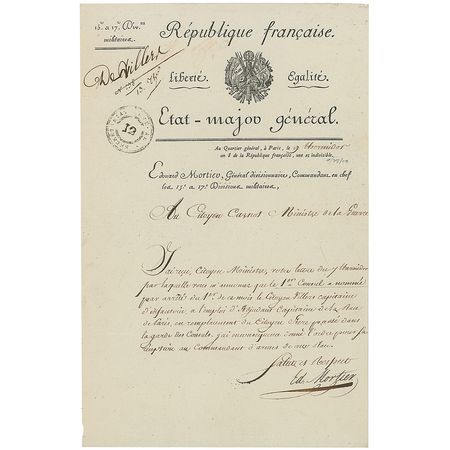 15e et 17e Divons
militaires
République française.
De Villers
Liberté. Egalité.
15. Th.
12
Etat-major général.
Au Quartier général, à Paris, le 9 thermidor
an 8 de la République française, une et indivisible.
Edouard Mortier, Général divisionnaire, Commandant en chef
les 15e et 17e Divisions militaires,
Au Citoyen Carnot Ministre de la Guerre
J'ai reçu, Citoyen Ministre, votre lettre du 7 thermidor
par laquelle vous m'annoncez que le 1er Consul a nommé
par arrêté du 1er de ce mois le Citoyen Villers capitaine
d'infanterie, à l'emploi d'Adjudant Capitaine de la place
de Paris, en remplacement du Citoyen passé dans
la garde des Consuls. j'ai donné l'ordre pour sa
réception au Commandant d'armes de cette place.
Salut et Respect
Ed. Mortier